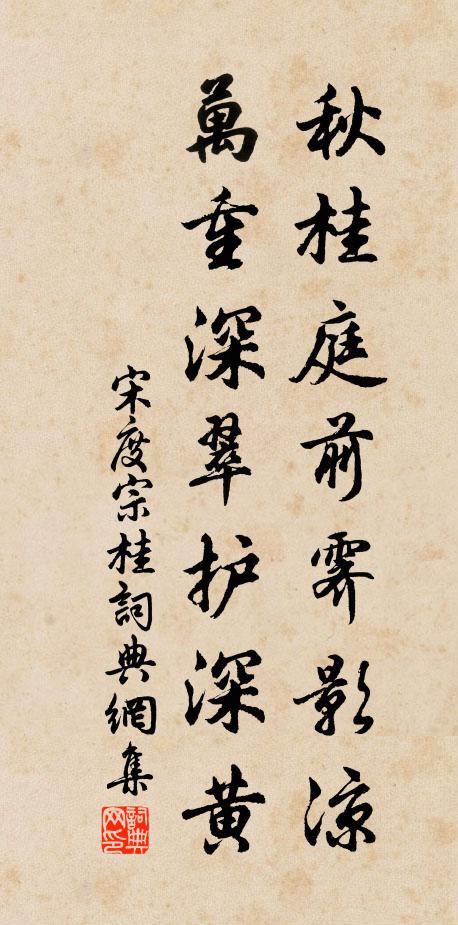 秋桂庭前霁影凉
萬重深翠护深黄
宋度宗桂詞典網集
詞典网印